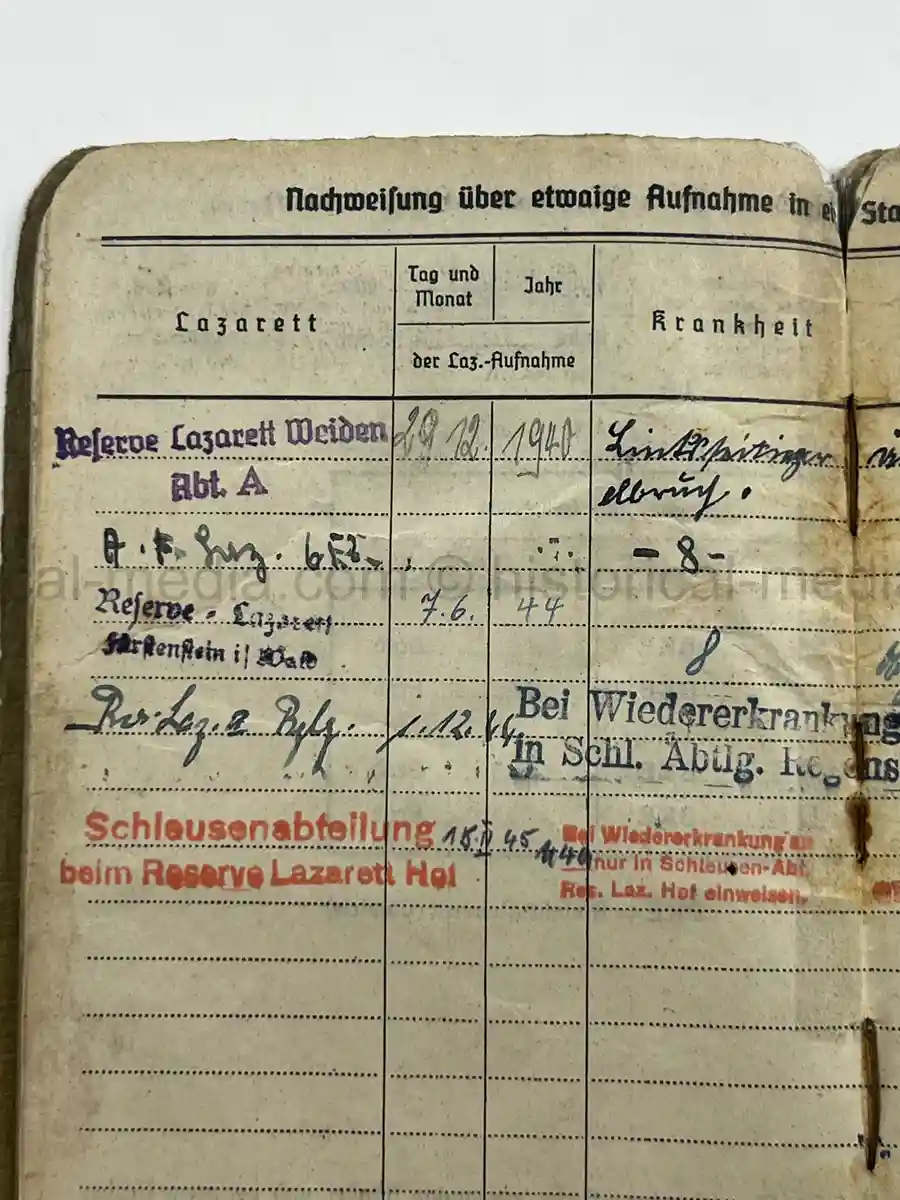 Nachweisung über etwaige Aufnahme in ei Sta
Lazarett
Tag und Monat
Jahr
der Laz.-Aufnahme
Krankheit
Reserve Lazarett Weiden
Abt. A
29 12. 1940
Linksseitiger
elbruch.
- 8 -
Reserve - Lazarett
7.6. 44
Fürstenstein i/ Wald
8
Res. Laz. 1.12.44
Bei Wiedererkrankung
in Schl. Abtlg. Regens
Schleusenabteilung
beim Reserve Lazarett Hof
15 II 45
Bei Wiedererkrankung
nur in Schleusen-Abt.
Res. Laz. Hof einweisen.
historical-media.com © historical-med